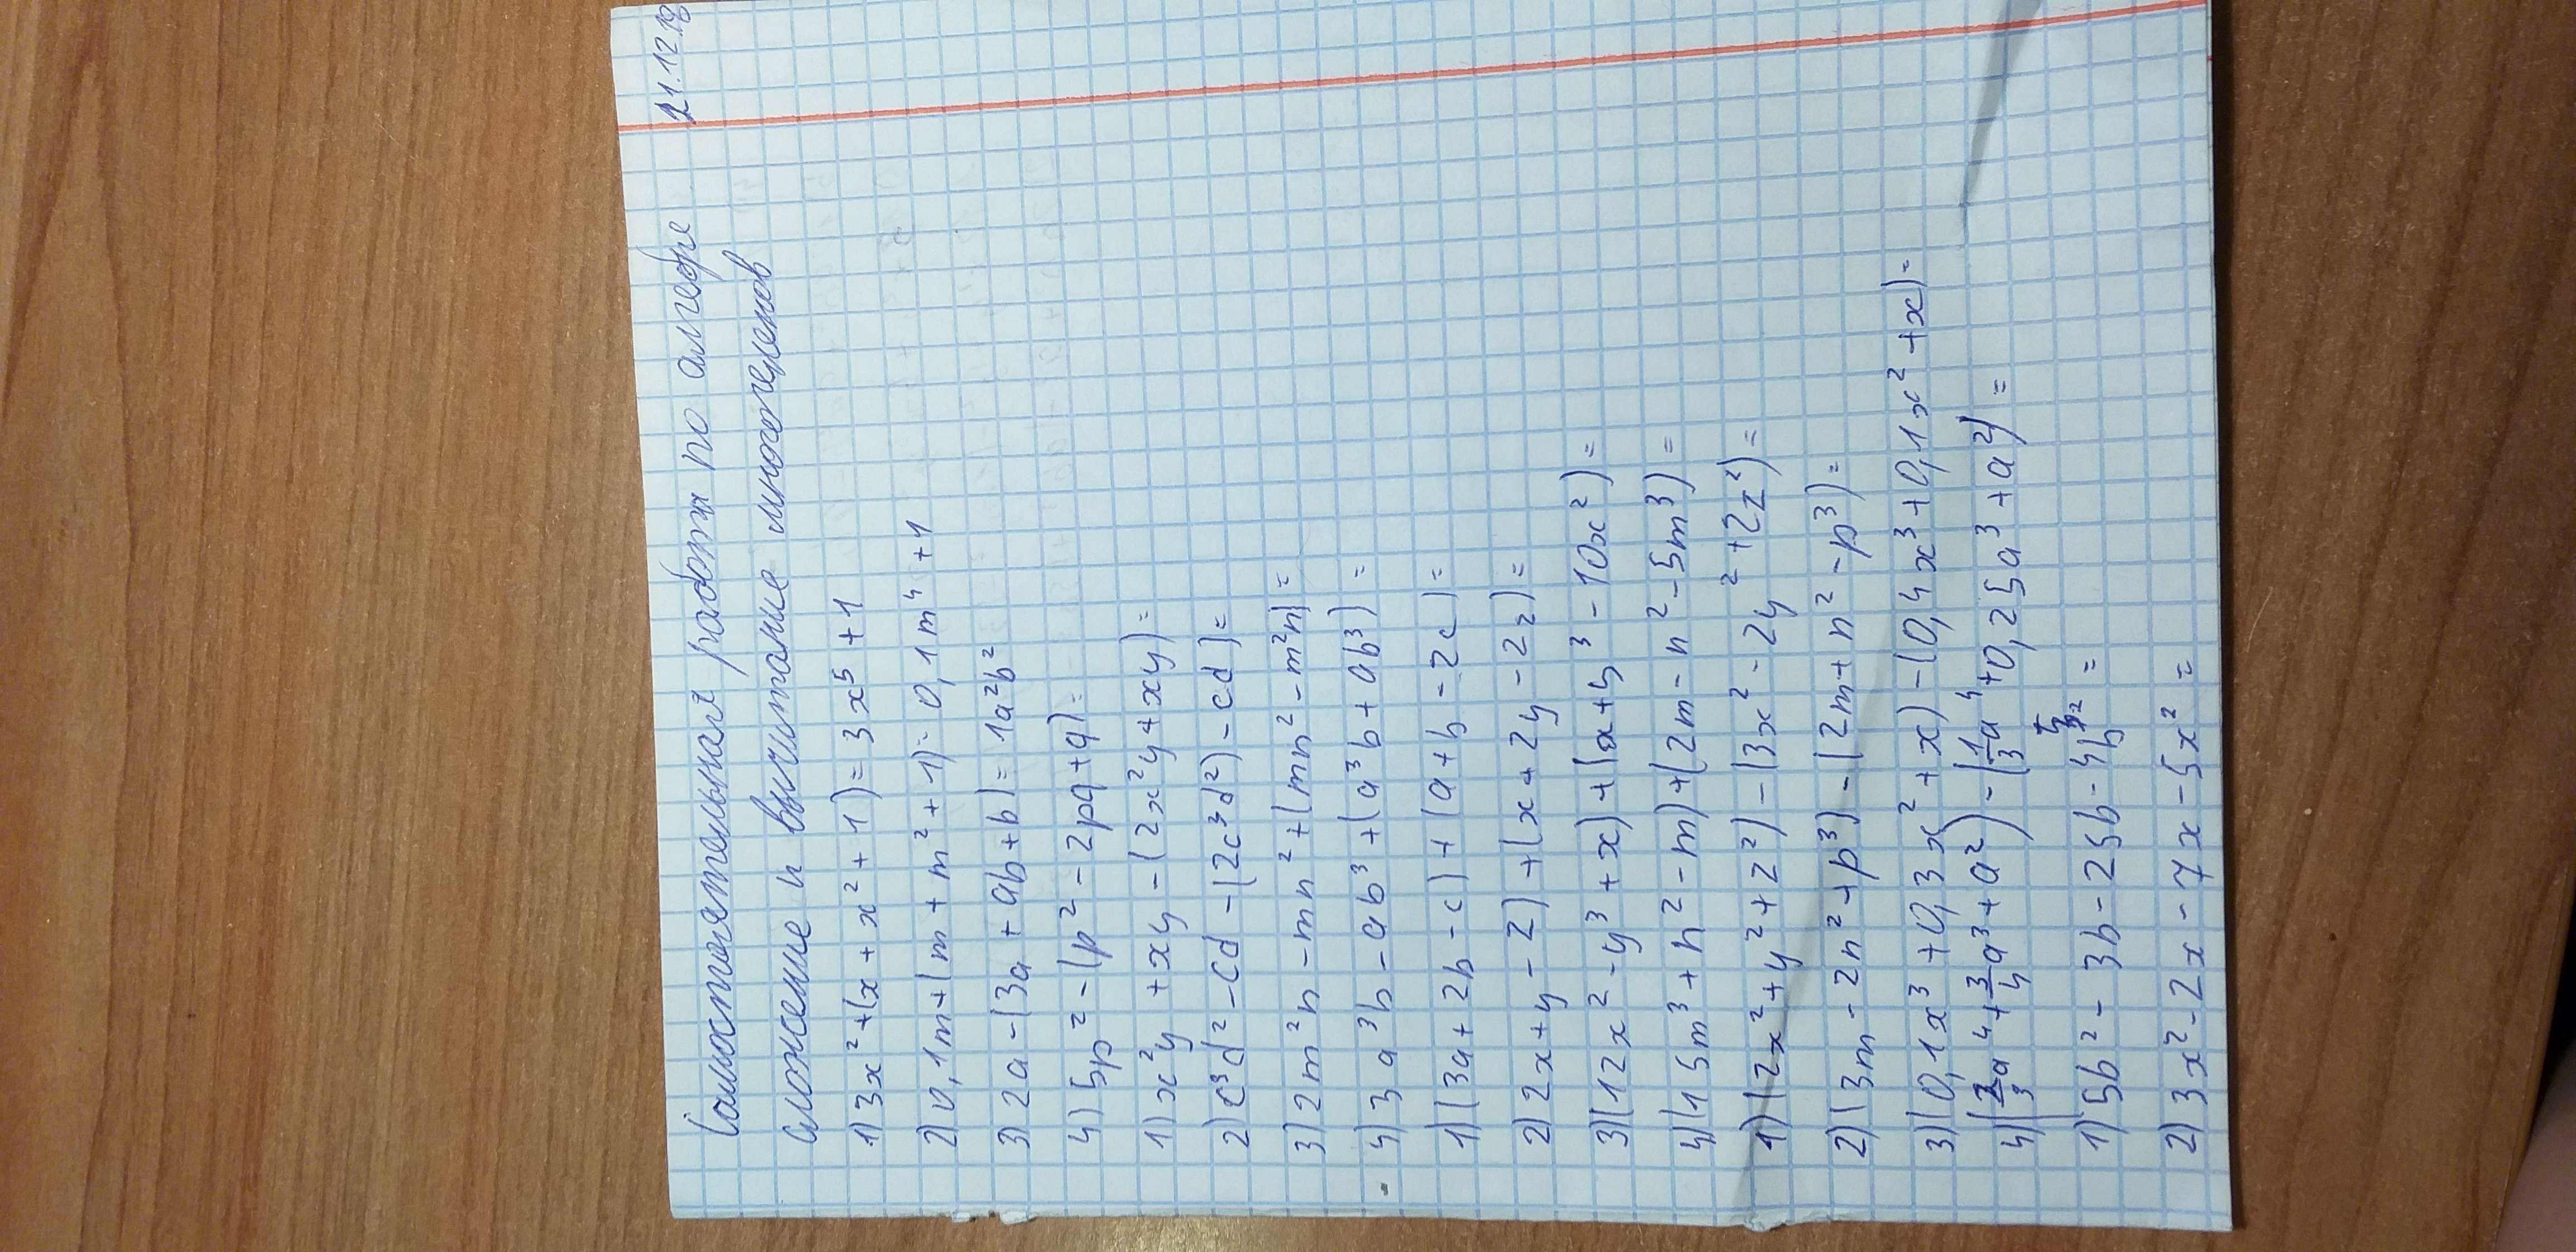 21.12.18
Самостоятельная работа по алгебре
Сложение и вычитание многочленов
1) 3x² + (x + x² + 1) = 3x⁵ + 1
2) 0,1m + (m + m² + 1) = 0,1m⁴ + 1
3) 2a - (3a + ab + b) = 1a²b²
4) 5p² - (p² - 2pq + q) =
1) x²y + xy - (2x²y + xy) =
2) c³d² - cd - (2c³d²) - cd) =
3) 2m²n - mn² + (mn² - m²n) =
4) 3a³b - ab³ + (a³b + ab³) =
1) (3a + 2b - c) + (a + b - 2c) =
2) 2x + y - z) + (x + 2y - 2z) =
3) (12x² - y³ + x) + (x + y³ - 10x²) =
4) (15m³ + n² - m) + (2m - n² - 5m³) =
1) (2x² + y² + z²) - (3x² - 2y² + 2z²) =
2) (3m - 2n² + p³) - (2m + n² - p³) =
3) (0,1x³ + 0,3x² + x) - (0,4x³ + 0,1x² + x) =
4) (2/3a⁴ + 3/4a³ + a²) - (1/3a⁴ + 0,25a³ + a²) =
1) 5b² - 3b - 25b - 4b² =
2) 3x² - 2x - 7x - 5x² =